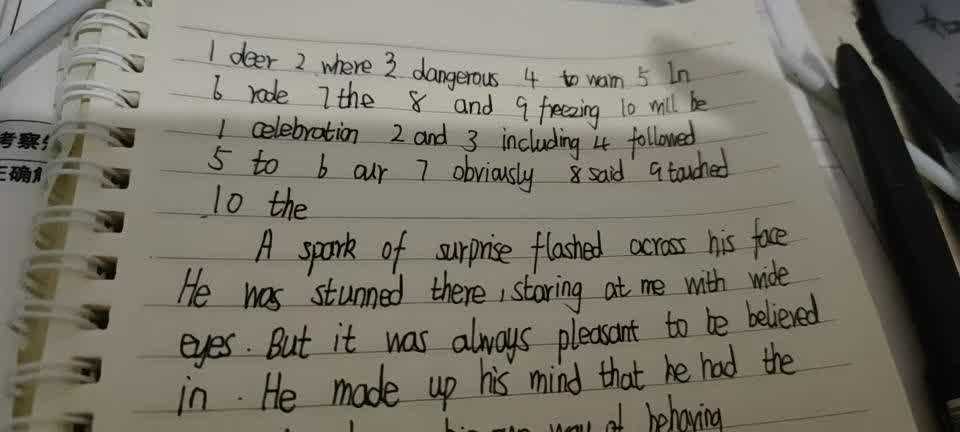 1 deer 2 where 3 dangerous 4 to warn 5 In
6 rode 7 the 8 and 9 freezing 10 will be
1 celebration 2 and 3 including 4 followed
5 to 6 our 7 obviously 8 said 9 touched
10 the
A spark of surprise flashed across his face
He was stunned there, staring at me with wide
eyes. But it was always pleasant to be believed
in. He made up his mind that he had the
way of behaving
考察
正确